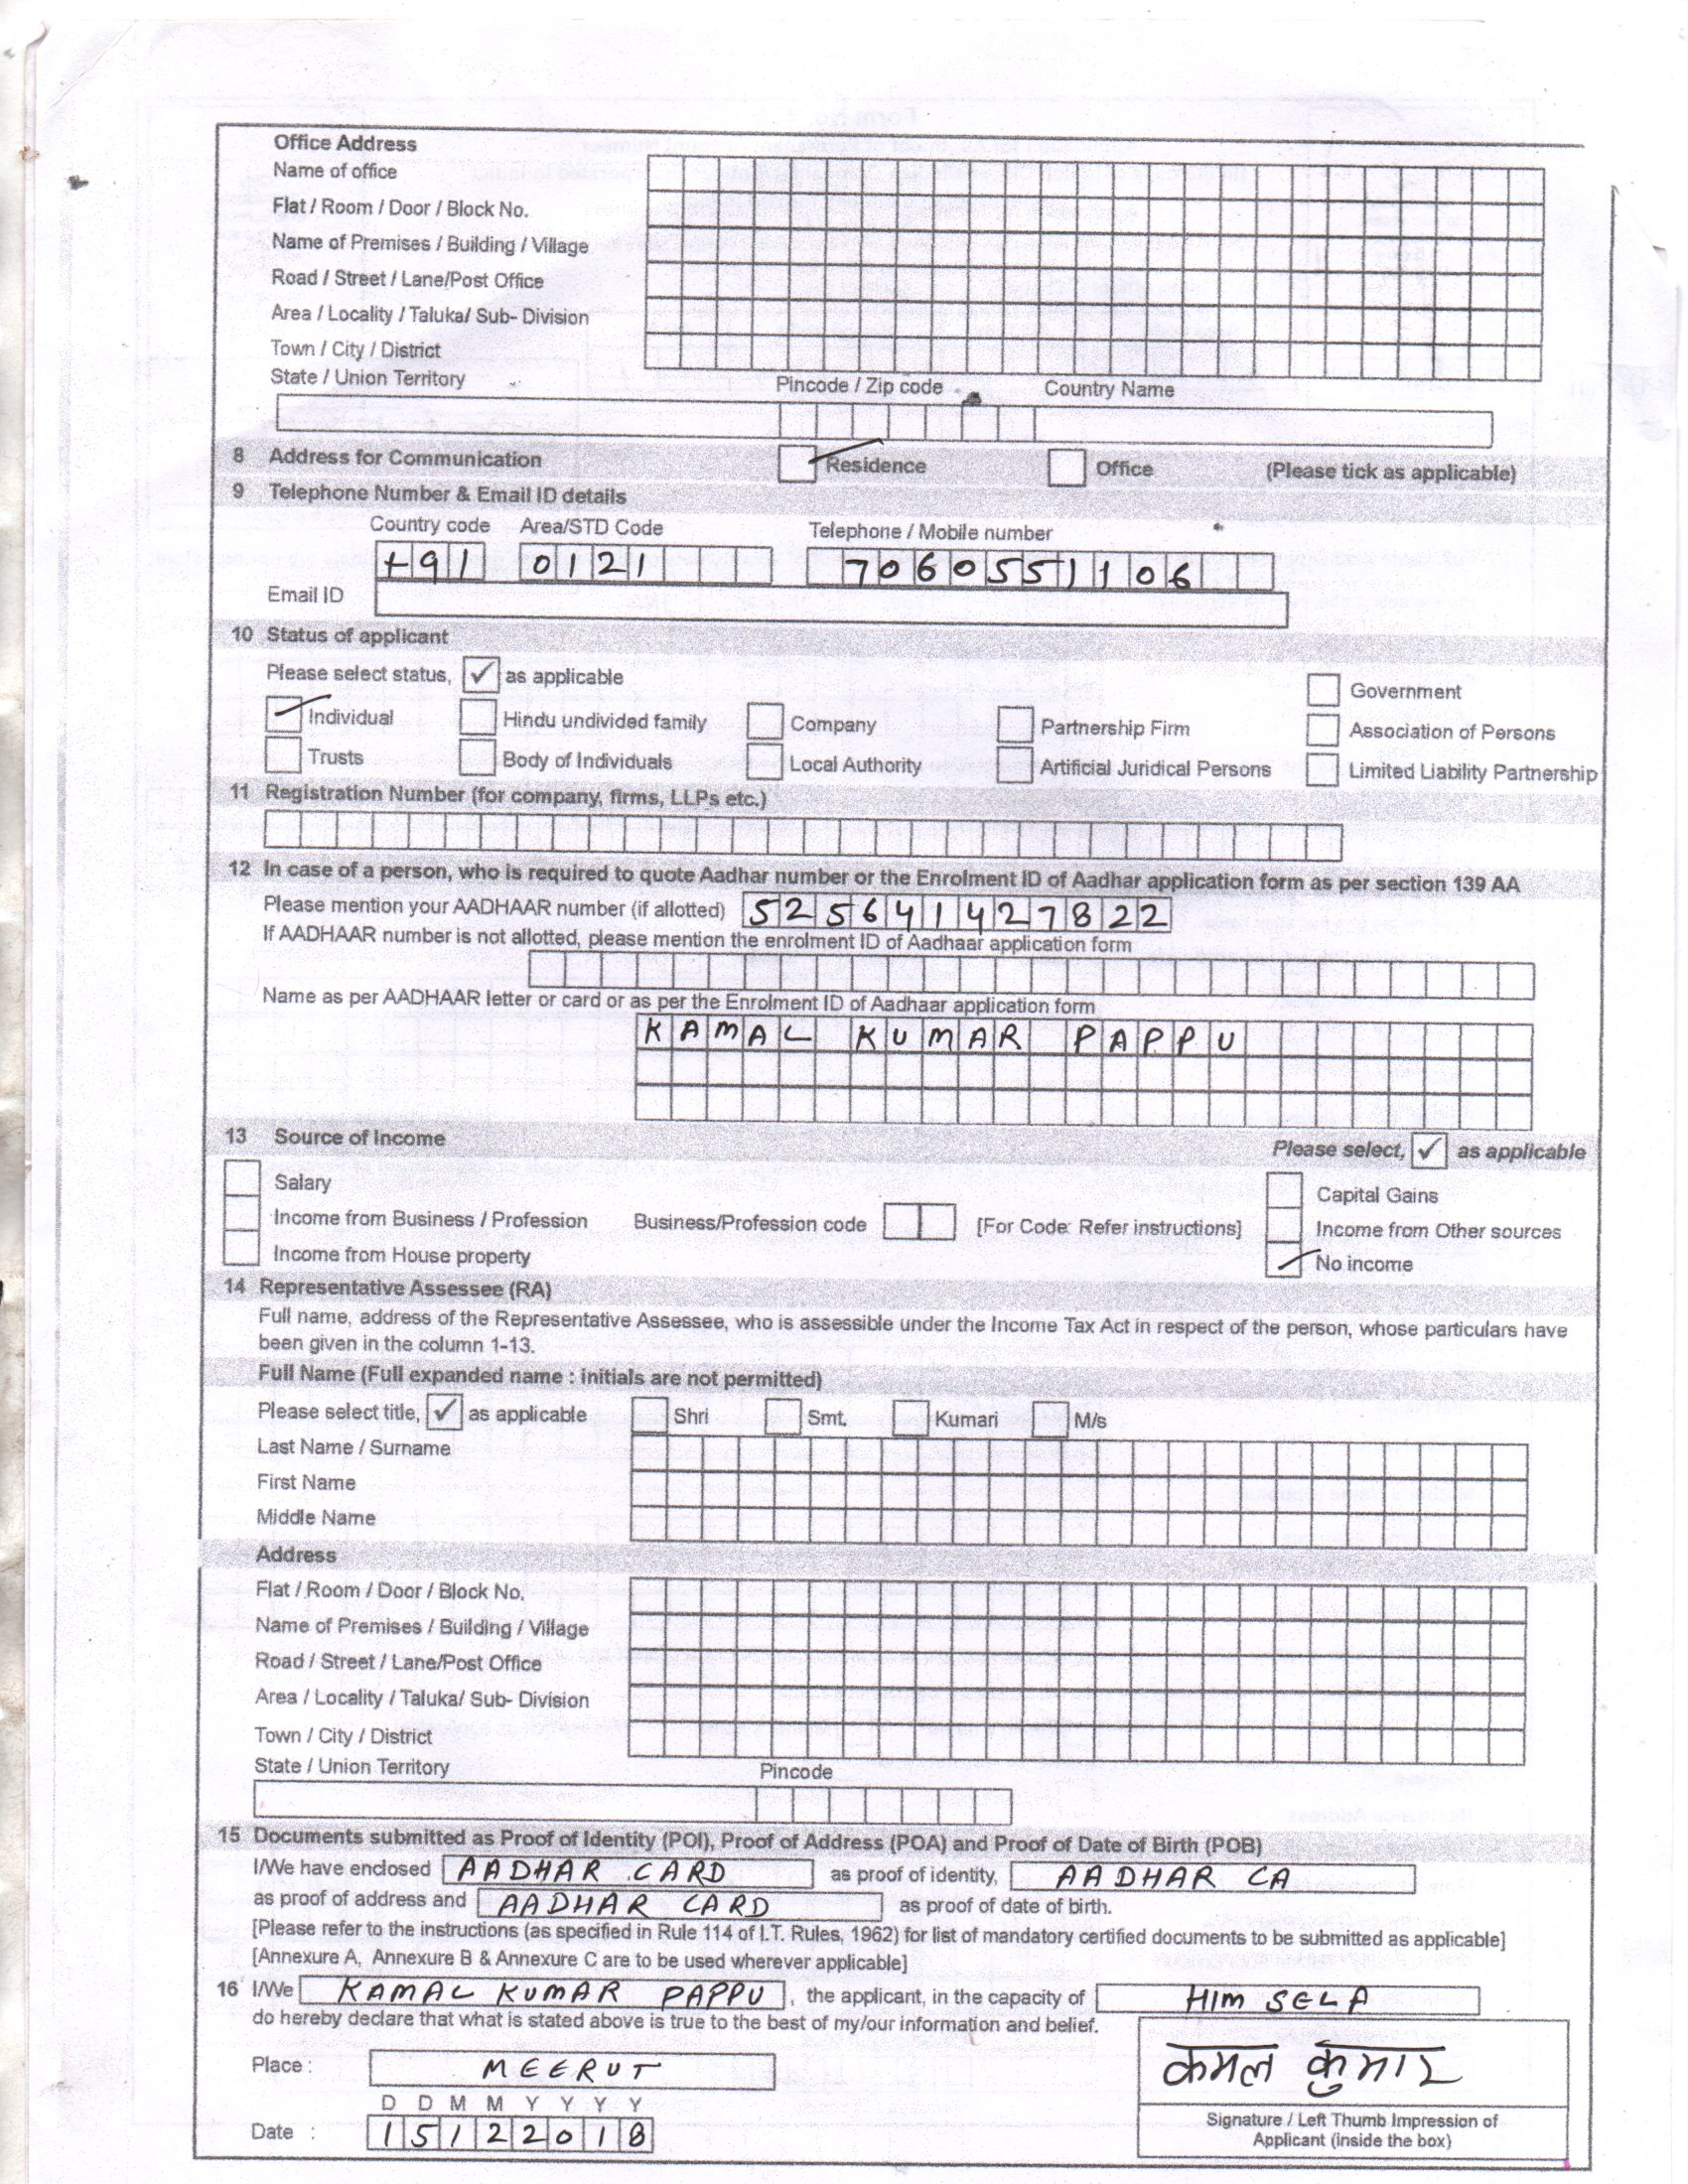 Office Address
Name of office
Flat / Room / Door / Block No.
Name of Premises / Building / Village
Road / Street / Lane/Post Office
Area / Locality / Taluka/ Sub- Division
Town / City / District
State / Union Territory Pincode / Zip code Country Name
8 Address for Communication Residence Office (Please tick as applicable)
9 Telephone Number & Email ID details
Country code Area/STD Code Telephone / Mobile number
+91 0121 7060551106
Email ID
10 Status of applicant
Please select status, ✓ as applicable
Government
Individual Hindu undivided family Company Partnership Firm Association of Persons
Trusts Body of Individuals Local Authority Artificial Juridical Persons Limited Liability Partnership
11 Registration Number (for company, firms, LLPs etc.)
12 In case of a person, who is required to quote Aadhar number or the Enrolment ID of Aadhar application form as per section 139 AA
Please mention your AADHAAR number (if allotted) 525641427822
If AADHAAR number is not allotted, please mention the enrolment ID of Aadhaar application form
Name as per AADHAAR letter or card or as per the Enrolment ID of Aadhaar application form
KAMAL KUMAR PAPPU
13 Source of Income Please select, ✓ as applicable
Salary Capital Gains
Income from Business / Profession Business/Profession code [For Code: Refer instructions] Income from Other sources
Income from House property No income
14 Representative Assessee (RA)
Full name, address of the Representative Assessee, who is assessible under the Income Tax Act in respect of the person, whose particulars have
been given in the column 1-13.
Full Name (Full expanded name : initials are not permitted)
Please select title, ✓ as applicable Shri Smt. Kumari M/s
Last Name / Surname
First Name
Middle Name
Address
Flat / Room / Door / Block No.
Name of Premises / Building / Village
Road / Street / Lane/Post Office
Area / Locality / Taluka/ Sub- Division
Town / City / District
State / Union Territory Pincode
15 Documents submitted as Proof of Identity (POI), Proof of Address (POA) and Proof of Date of Birth (POB)
I/We have enclosed AADHAR CARD as proof of identity, AADHAR CA
as proof of address and AADHAR CARD as proof of date of birth.
[Please refer to the instructions (as specified in Rule 114 of I.T. Rules, 1962) for list of mandatory certified documents to be submitted as applicable]
[Annexure A, Annexure B & Annexure C are to be used wherever applicable]
16 I/We KAMAL KUMAR PAPPU, the applicant, in the capacity of HIM SELF
do hereby declare that what is stated above is true to the best of my/our information and belief.
Place : MEERUT
कमल कुमार
D D M M Y Y Y Y
Date : 15122018
Signature / Left Thumb Impression of
Applicant (inside the box)